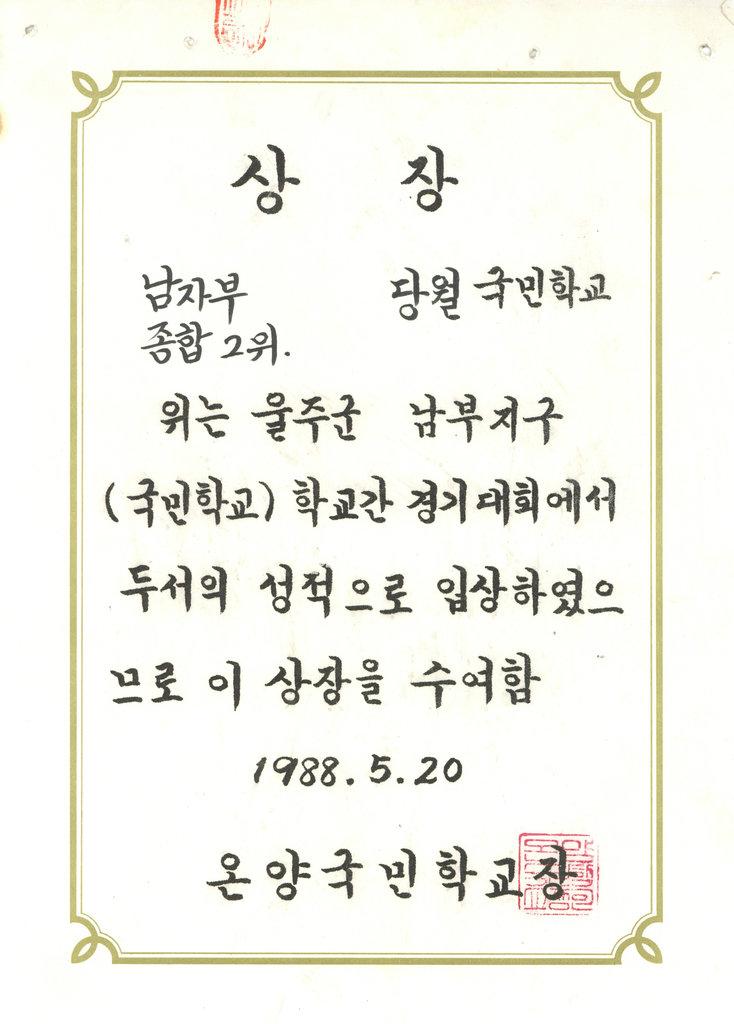 상 장
남자부 당월 국민학교
종합 2위.
위는 울주군 남부지구
(국민학교) 학교간 경기대회에서
두서의 성적으로 입상하였으
므로 이 상장을 수여함
1988.5.20
온양국민학교장